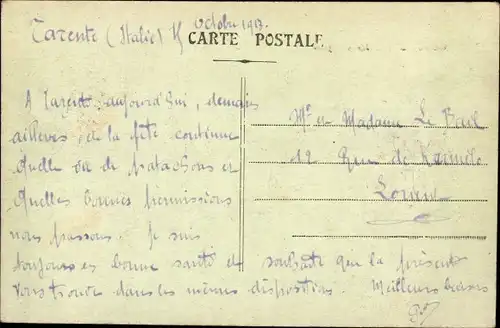 Tarente (Italie) Octobre 1917.
CARTE POSTALE
A Tarente aujourd'hui, demain
ailleurs où la fête continue
Quelle vie de patachons et
Quelles bonnes permissions
nous passons. Je suis
toujours en bonne santé et souhaite que la présente
Vous trouve dans les mêmes dispositions. Meilleurs baisers
Mr et Madame Le
12 Rue de
Lorient